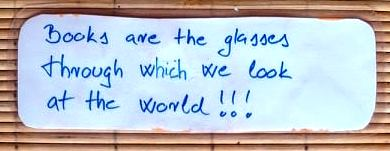 Books are the glasses
through which we look
at the world!!!